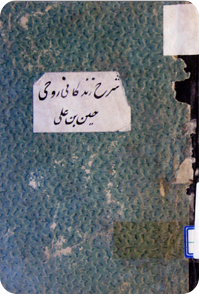 شرح زندگانی روحی
حسین بن علی